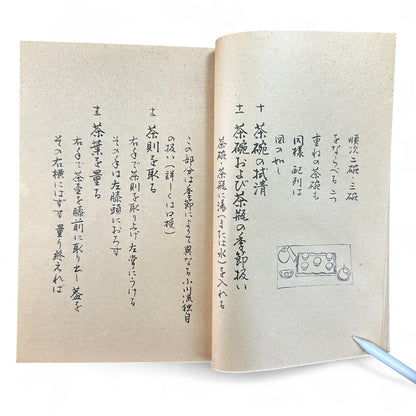 順次 二碗 三碗
をならべもう一つ
重ねの茶碗も
同様 配列は
図の如し
十 茶碗の拭清
十一 茶碗および茶瓶の季節扱い
茶碗・茶瓶に湯(または水)を入れる
この部分は季節によって異なる小川流独自
の扱い(詳しくは口授)
十二 茶則を取る
右手で茶則を取り上げ左掌にうける
その手は左膝頭におろす
十三 茶葉を量る
右手で茶壷を膝前に取り出し 蓋を
その右横にはずす 量り終えれば